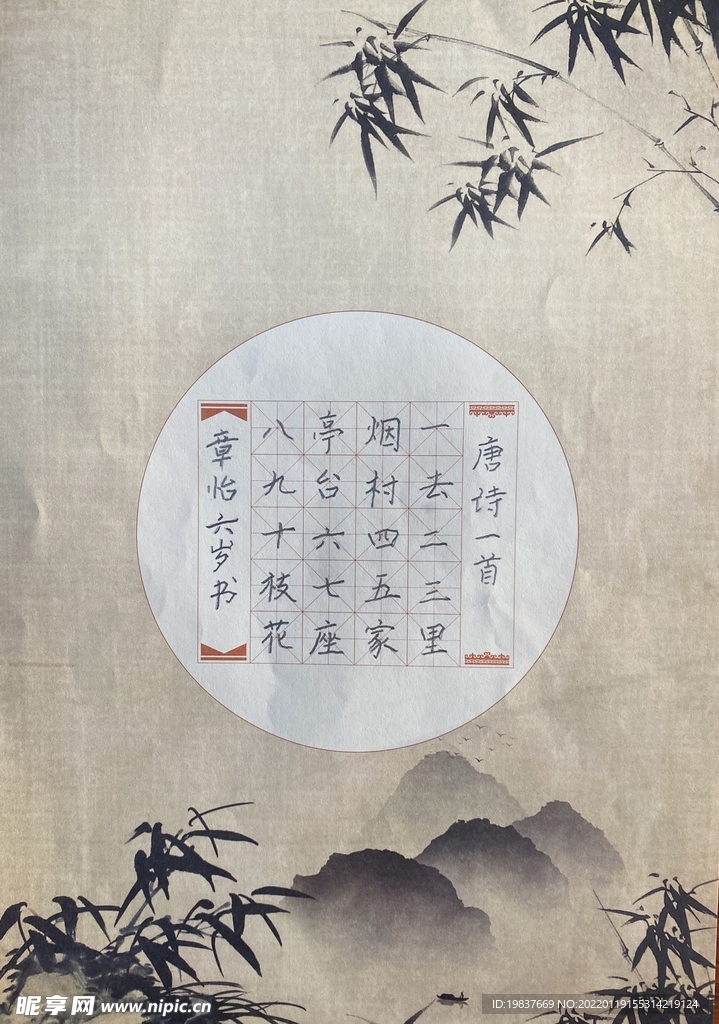 唐诗一首
一去二三里
烟村四五家
亭台六七座
八九十枝花
章怡六岁书
昵享网 www.nipic.cn
ID:19837669 NO:20220119155314219124